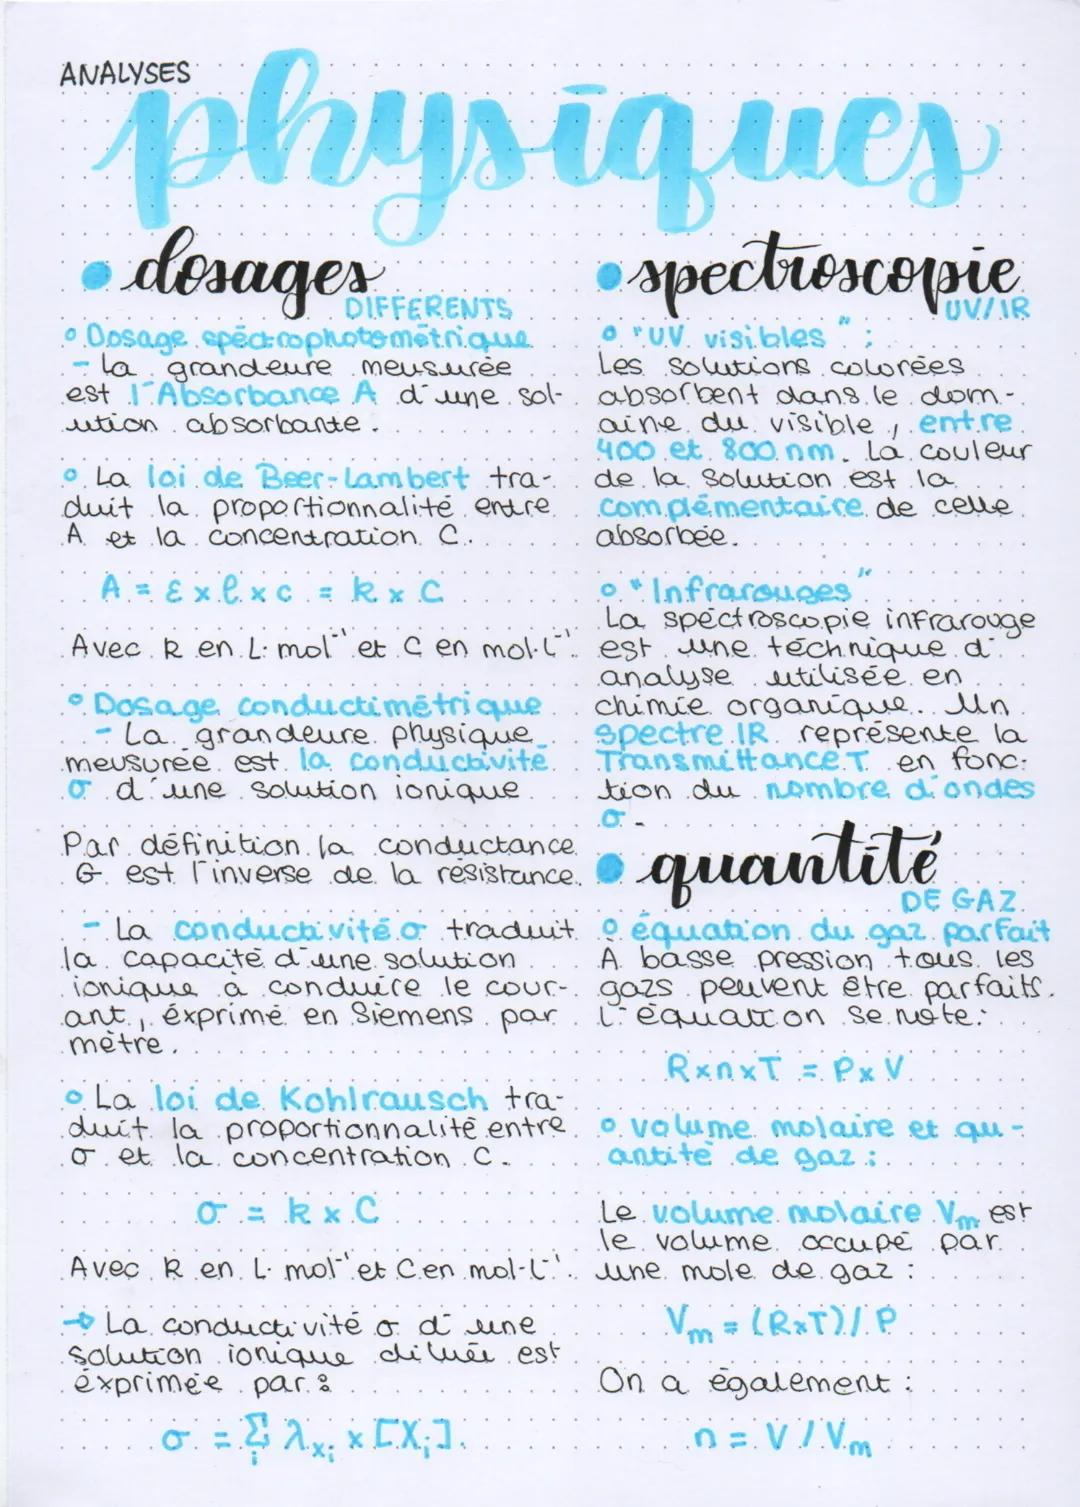 ANALYSES
physiques
dosages
DIFFERENTS
Dosage spéctrophotométrique
- la grandeure meusurée
est l'Absorbance A d'une sol-
ution absorbante.
La loi de Beer-Lambert tra-
duit la proportionnalité entre
A et la concentration C.
A = ε x l x c = k x C
Avec k en L·mol⁻¹ et C en mol·L⁻¹.
Dosage conductimétrique
- La grandeure physique
meusurée est la conductivité
σ d'une solution ionique
Par définition la conductance
G est l'inverse de la résistance.
- La conductivité σ traduit
la capacité d'une solution
ionique à conduire le cour-
ant, éxprimé en Siemens par
mètre.
La loi de Kohlrausch tra-
duit la proportionnalité entre
σ et la concentration C.
σ = k x C
Avec k en L·mol⁻¹ et C en mol·L⁻¹.
→ La conductivité σ d'une
solution ionique diluée est
éxprimée par :
σ = Σi λXi x [Xi].
spectroscopie
UV/IR
"UV visibles" :
Les solutions colorées
absorbent dans le dom-
aine du visible, entre
400 et 800 nm. La couleur
de la solution est la
complémentaire de celle
absorbée.
"Infrarouges"
La spéctroscopie infrarouge
est une téchnique d'
analyse utilisée en
chimie organique. Un
spectre IR représente la
Transmittance T en fonc-
tion du nombre d'ondes
σ.
quantité
DE GAZ
équation du gaz parfait
À basse pression tous les
gazs peuvent être parfaits.
L'équation se note:
RxnxT = PxV
volume molaire et qu-
antité de gaz :
Le volume molaire Vm est
le volume occupé par
une mole de gaz :
Vm = (RxT)/P
On a également :
n = V/Vm